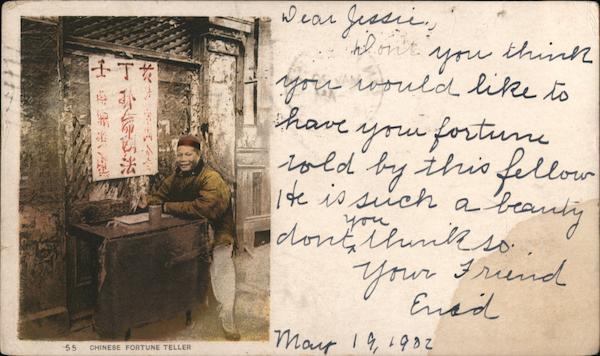 Dear Jessie,
Don't you think
you would like to
have your fortune
told by this fellow
He is such a beauty
dont you think so.
Your Friend
Enid
May 19, 1902
55 CHINESE FORTUNE TELLER